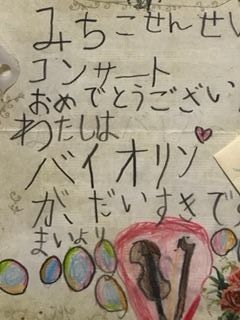 みちこせんせい
コンサート
おめでとうござい
わたしは
バイオリン
が、だいすきです
まいより